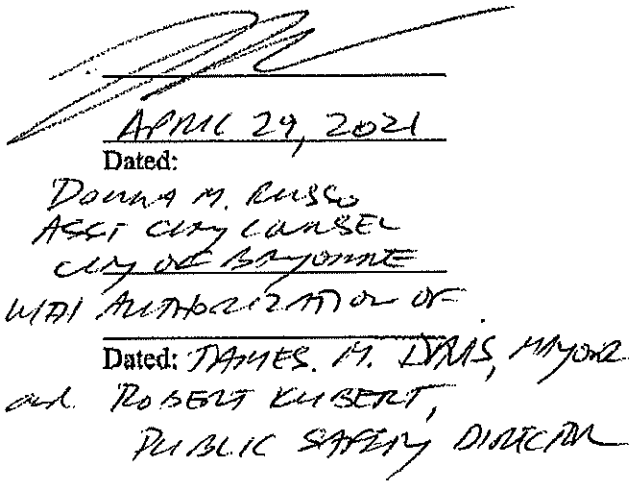 APRIL 29, 2021
Dated:
DONNA M. RUSSO
ASST CITY COUNSEL
CITY OF BAYONNE
WITH AUTHORIZATION OF
Dated: JAMES. M. DAVIS, MAYOR
and ROBERT KUBERT,
PUBLIC SAFETY DIRECTOR